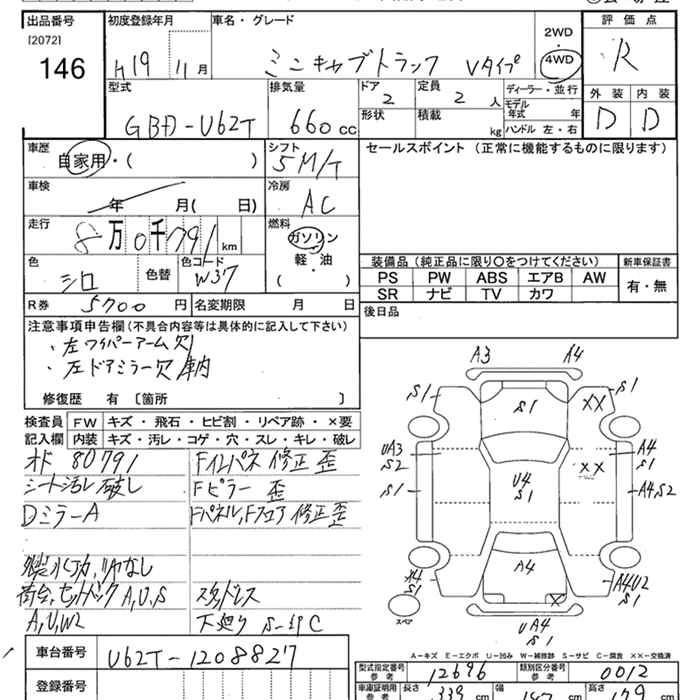 出品番号 初度登録年月 車名・グレード 2WD 評価点
[2072]
146 H19 11月 ミニキャブトラック Vタイプ 4WD R
型式 排気量 ドア 定員 ディーラー・並行 外装 内装
GBD-U62T 660cc 2 2人 モデル年式 年 D D
形状 積載 kg ハンドル 左・右
車歴 シフト セールスポイント(正常に機能するものに限ります)
自家用・( ) 5M/T
車検 冷房
年 月( 日) AC
走行 燃料
8万0千791km ガソリン
軽・油
色 色替 色コード ( )
シロ W37
装備品(純正品に限り〇をつけてください) 新車保証書
PS PW ABS エアB AW 有・無
SR ナビ TV カワ
R券 5700円 名変期限 月 日 後日品
注意事項申告欄(不具合内容等は具体的に記入して下さい)
・左ワイパーアーム欠
・左ドアミラー欠 車内
修復歴 有〔箇所 〕
検査員 FW キズ・飛石・ヒビ割・リペア跡・×要
記入欄 内装 キズ・汚レ・コゲ・穴・スレ・キレ・破レ
オド 80791 Fインパネ修正歪
シート汚レ破レ Fピラー歪
DミラーA Fパネル,Fフェア修正歪
荷台,セットバックA,U,S スタッドレス
A,U,W2 下廻り S-中C
A3 A4
S1 S1 S1 XX
UA3 S2 A4 S1
S1 U4 S1 XX A4S2
A4 S1 A4 A4U2 S1
スペア X
UA4 S1
A-キズ E-エクボ U-凹み W-補修跡 S-サビ C-腐食 XX-交換済
車台番号 U62T-1208827
登録番号
型式指定番号 参考 12696 類別区分番号 参考 0012
車庫証明用 参考 長さ 339cm 幅 147cm 高さ 179cm